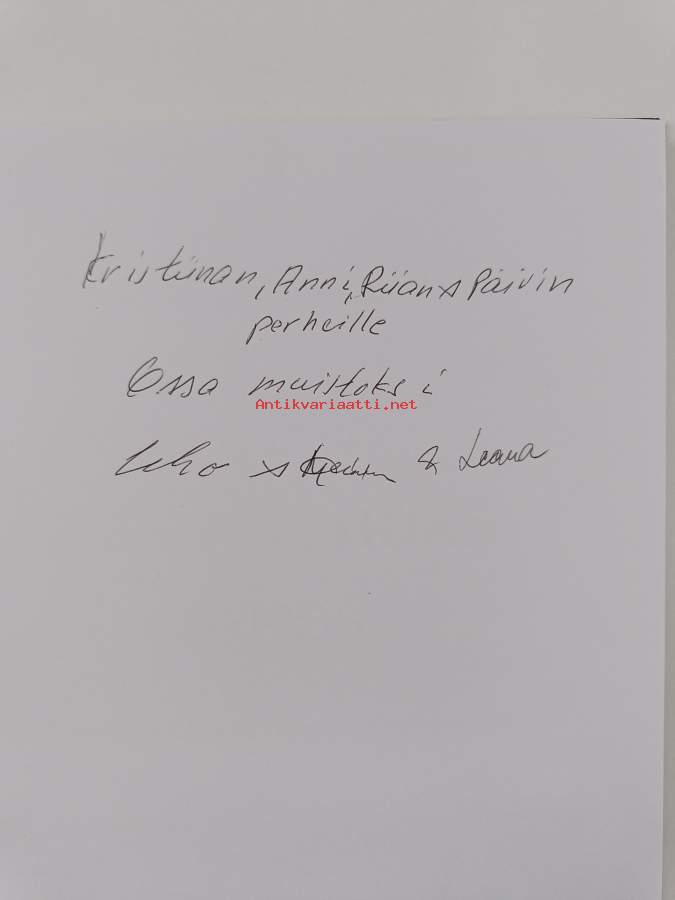 Kristiinan, Anni, Riian & Päivin
perheille
Ossa muistoksi
Antikvariaatti.net
& Leena